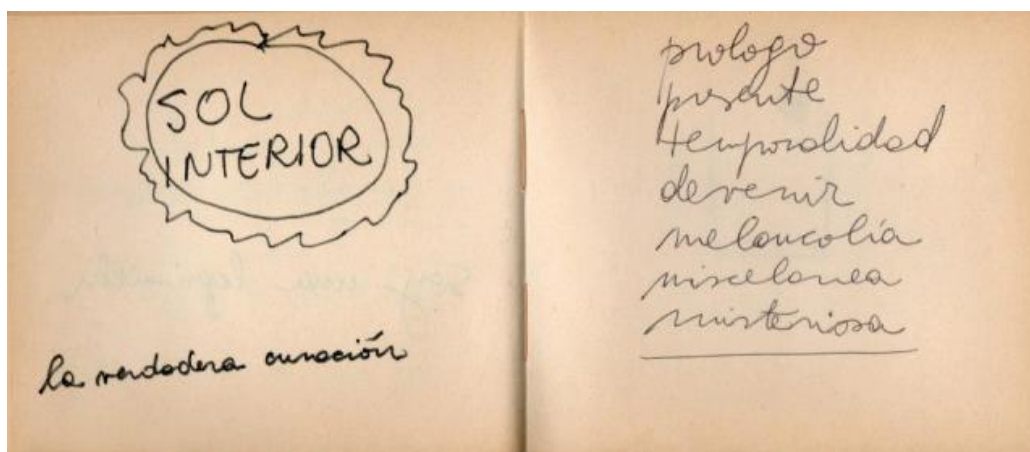 SOL
INTERIOR
la verdadera curación
prologo
presente
temporalidad
devenir
melancolía
miscelanea
misteriosa